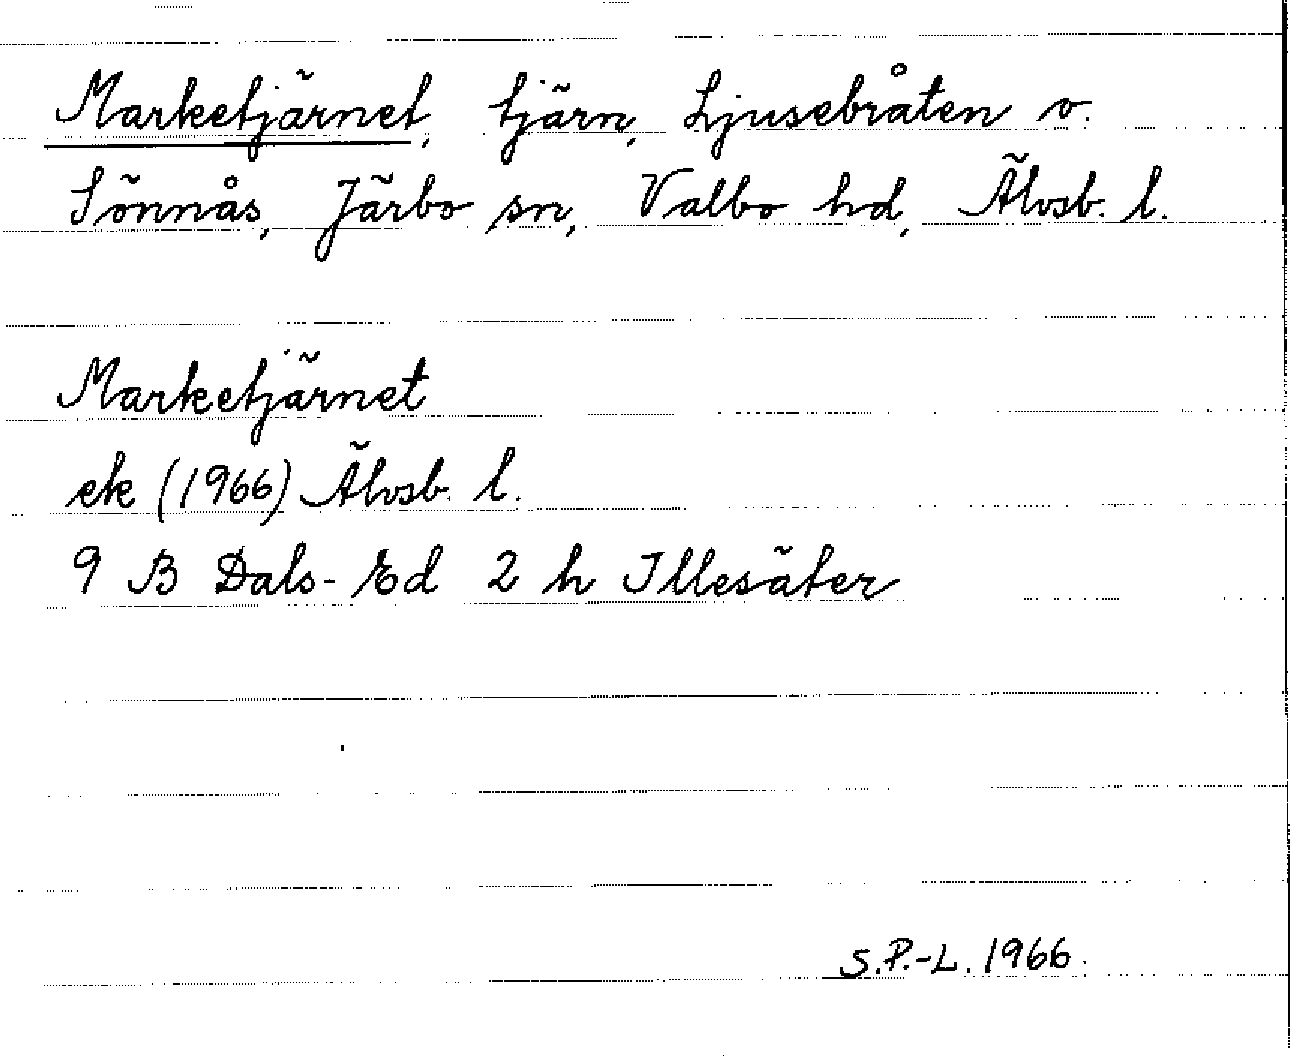 Marketjärnet, tjärn, Ljusebråten v.
Sönnås, Järbo sn, Valbo hd, Älvsb. l.
Marketjärnet
ek (1966) Älvsb. l.
9 B Dals-Ed 2 h Illesäter
S.P.-L. 1966.